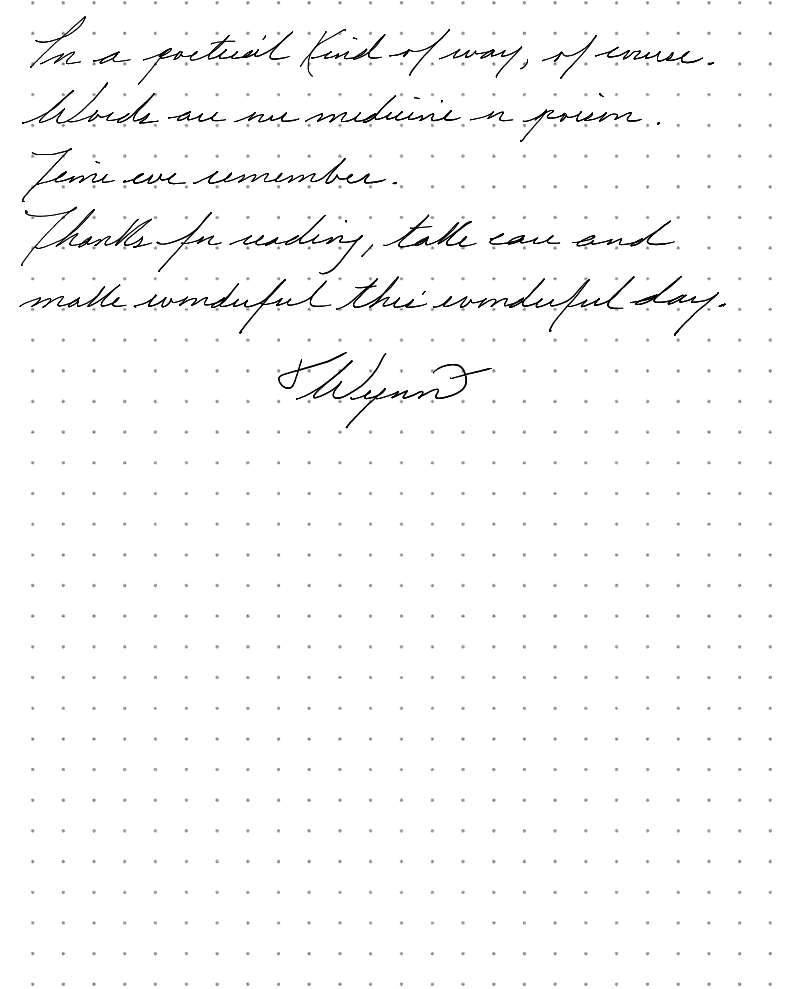 In a poetical kind of way, of course.
Words are our medicine or poison.
Time we remember.
Thanks for reading, take care and
make wonderful this wonderful day.
Wynn